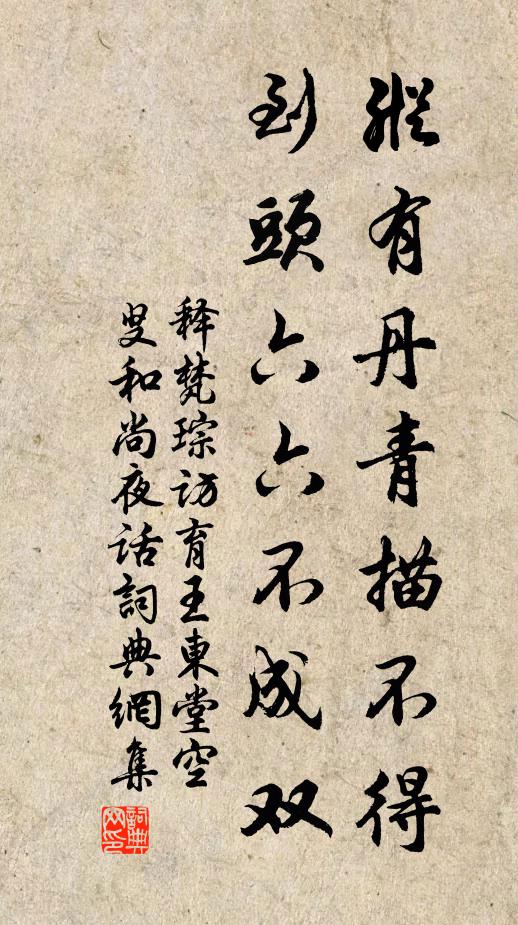 縱有丹青描不得
到頭六六不成双
释梵琮访育王東堂空
叟和尚夜话詞典網集
詞典网印